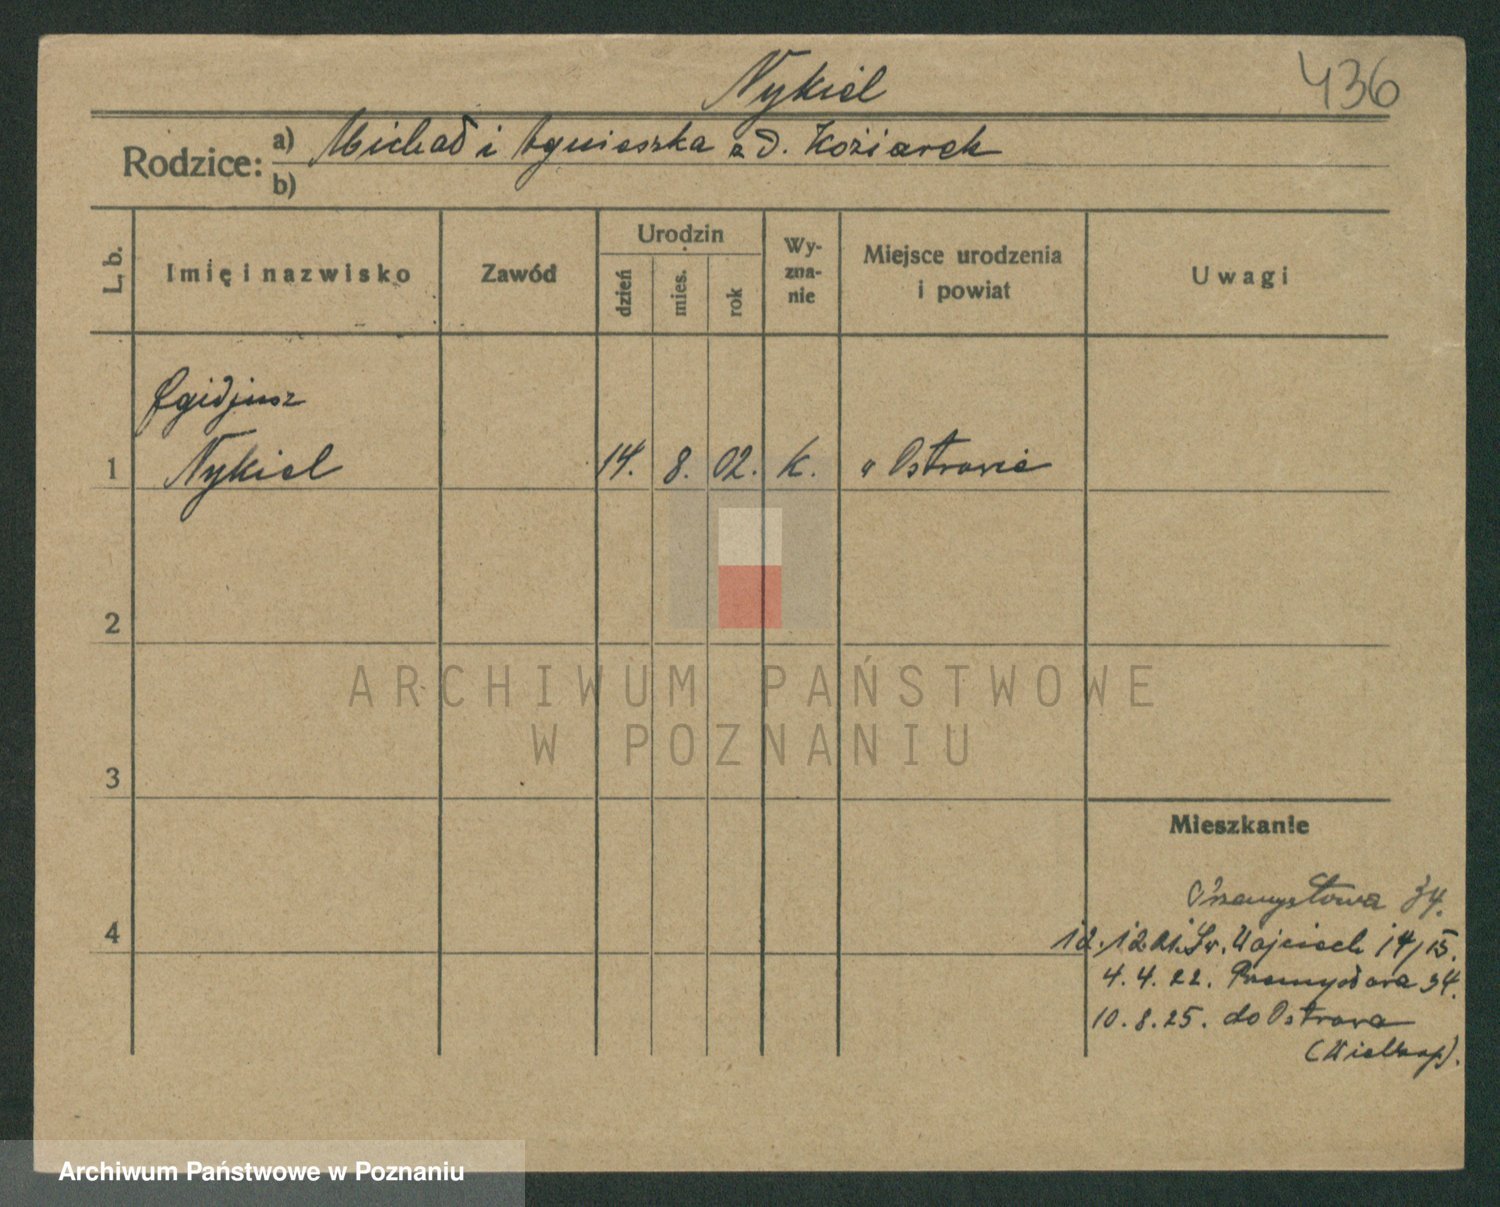 Nykiel
436
Rodzice: a) Michał i Agnieszka z d. Koziarek
b)
L. b.
Imię i nazwisko
Zawód
Urodzin
dzień
mies.
rok
Wy-
zna-
nie
Miejsce urodzenia
i powiat
Uwagi
Egidjusz
1 Nykiel 14. 8. 02. k. w Ostrowie
2
3
ARCHIWUM PAŃSTWOWE
W POZNANIU
Mieszkanie
4
Przemysłowa 34.
12.12.21. Św. Wojciech 14/15.
4.4.22. Przemysłowa 34.
10.8.25. do Ostrowa
(Wielkop).
Archiwum Państwowe w Poznaniu